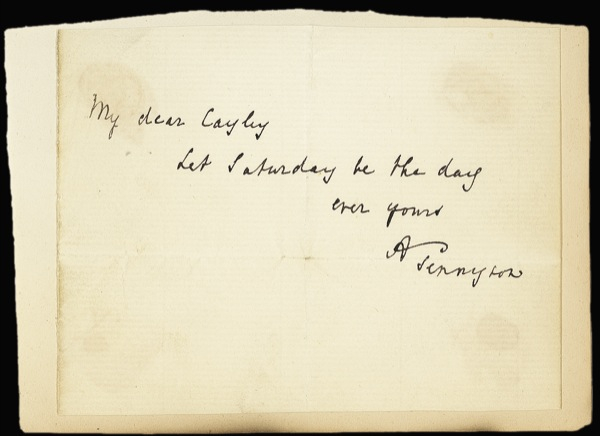 My dear Cayley
Let Saturday be the day
ever yours
A Tennyson